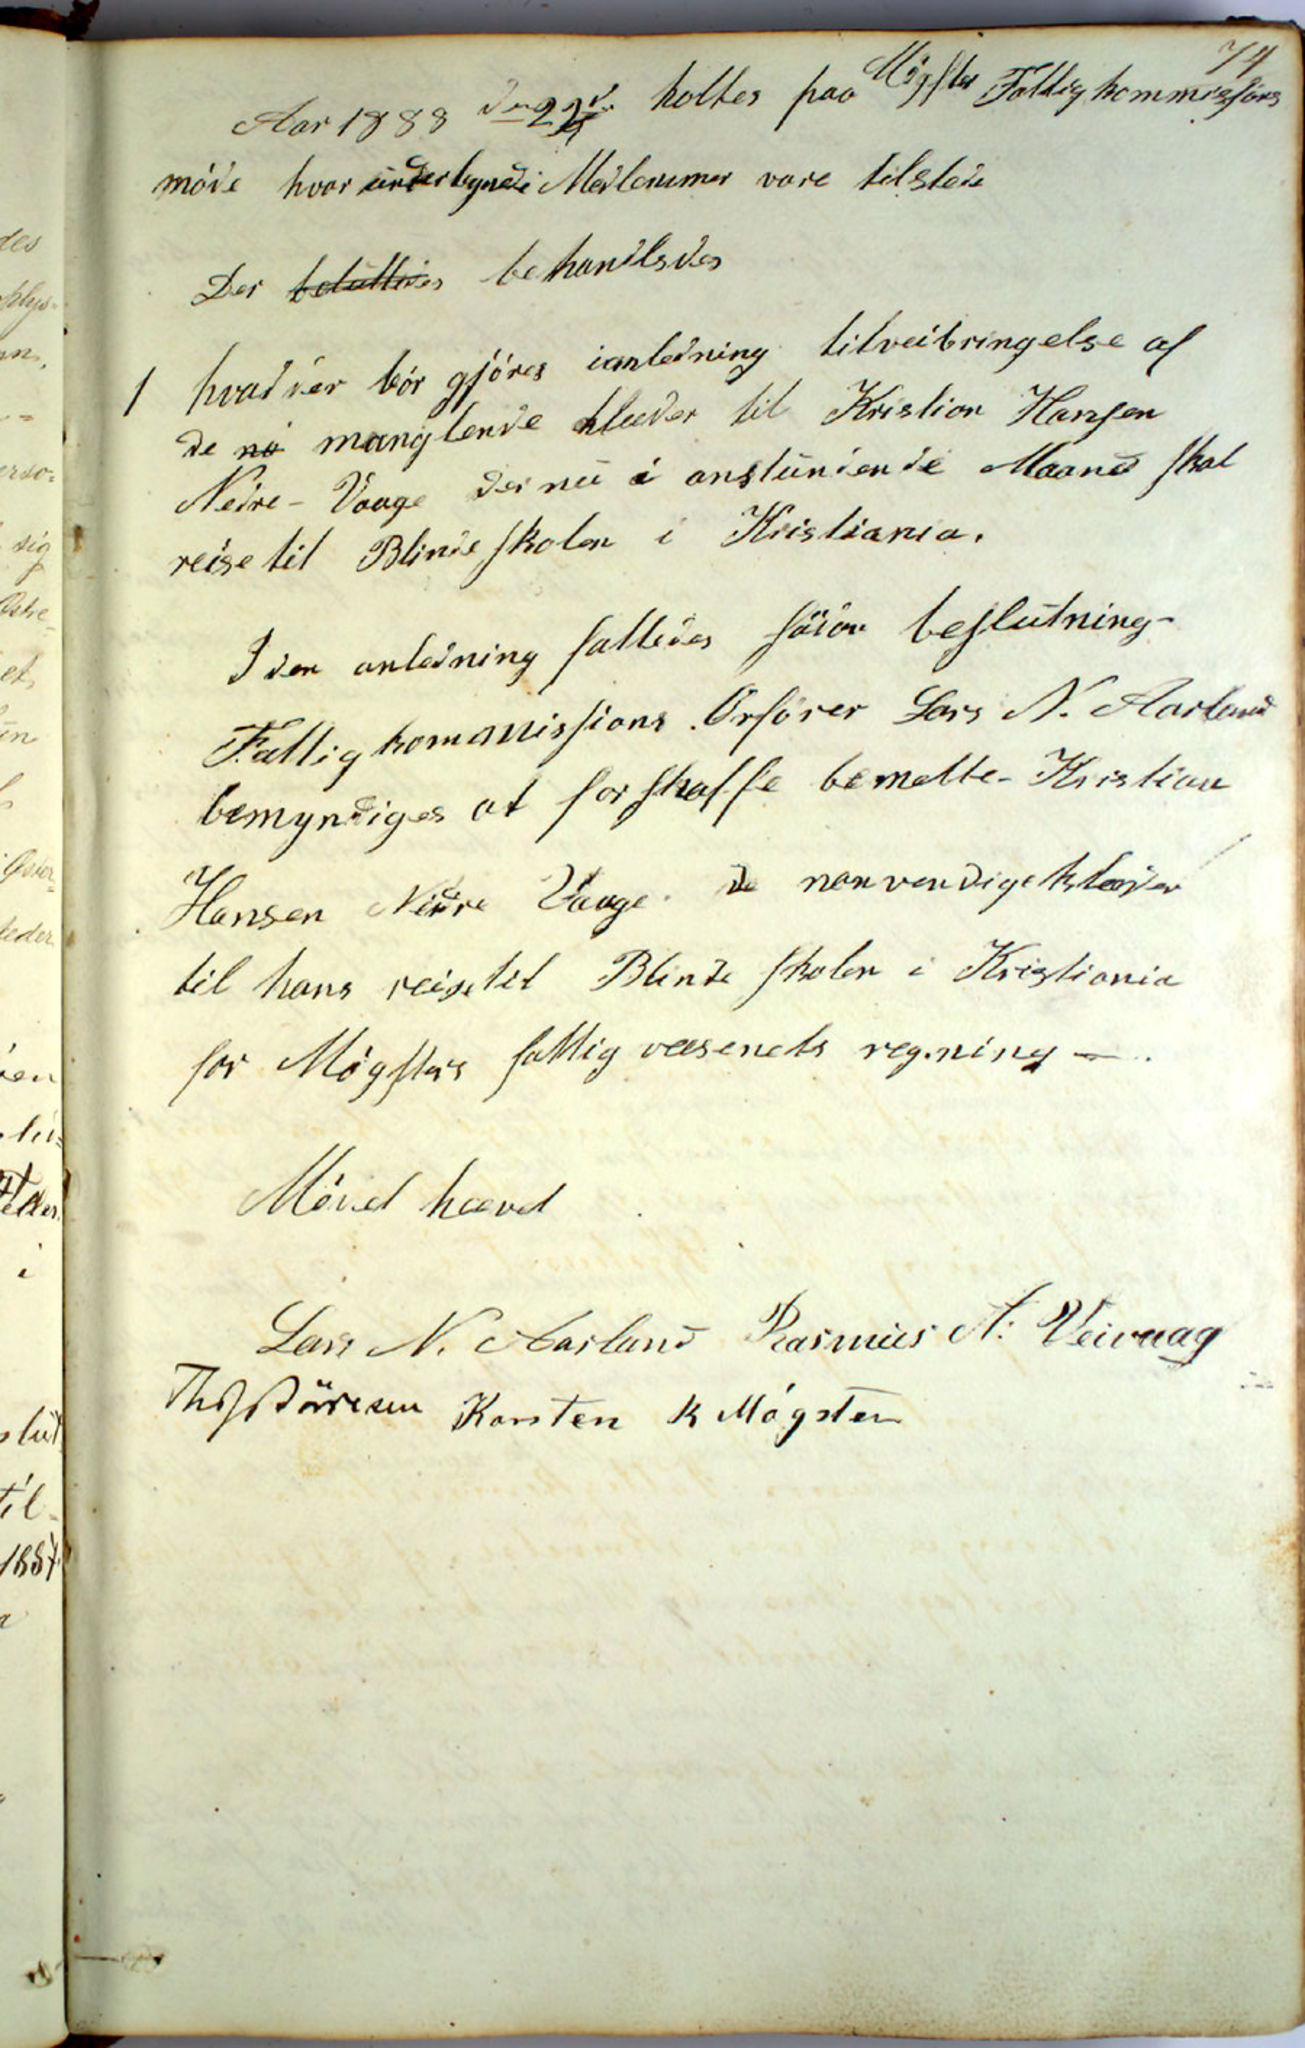 74
Aar 1888 den 22de holtes paa Møgster Fattigkommissjons
møde hvor underteynede Medlemmer vare tilstede
Der beluttedes behandledes
1 hvad der bör gjöres ianledning tilveibringelse af
de nö manglende klæder til Kristian Hansen
Nedre-Vaage der nu i anstundende Maaned skal
reise til Blindeskolen i Kristiania.
I den anledning fattedes sådan beslutning-
Fattigkommissions Orförer Lars N. Aarland
bemyndiges at forskaffe bemelte- Kristian
Hansen Nedre Vaage. de nønvendige klæder
til hans reise til Blinde skolen i Kristiania
for Mögsters fattigvæsenets regning-.
Möded hæved
Lars N. Aarland Rasmus A: Veivaag
Karsten K Mögster
des
et,
i
til
1887